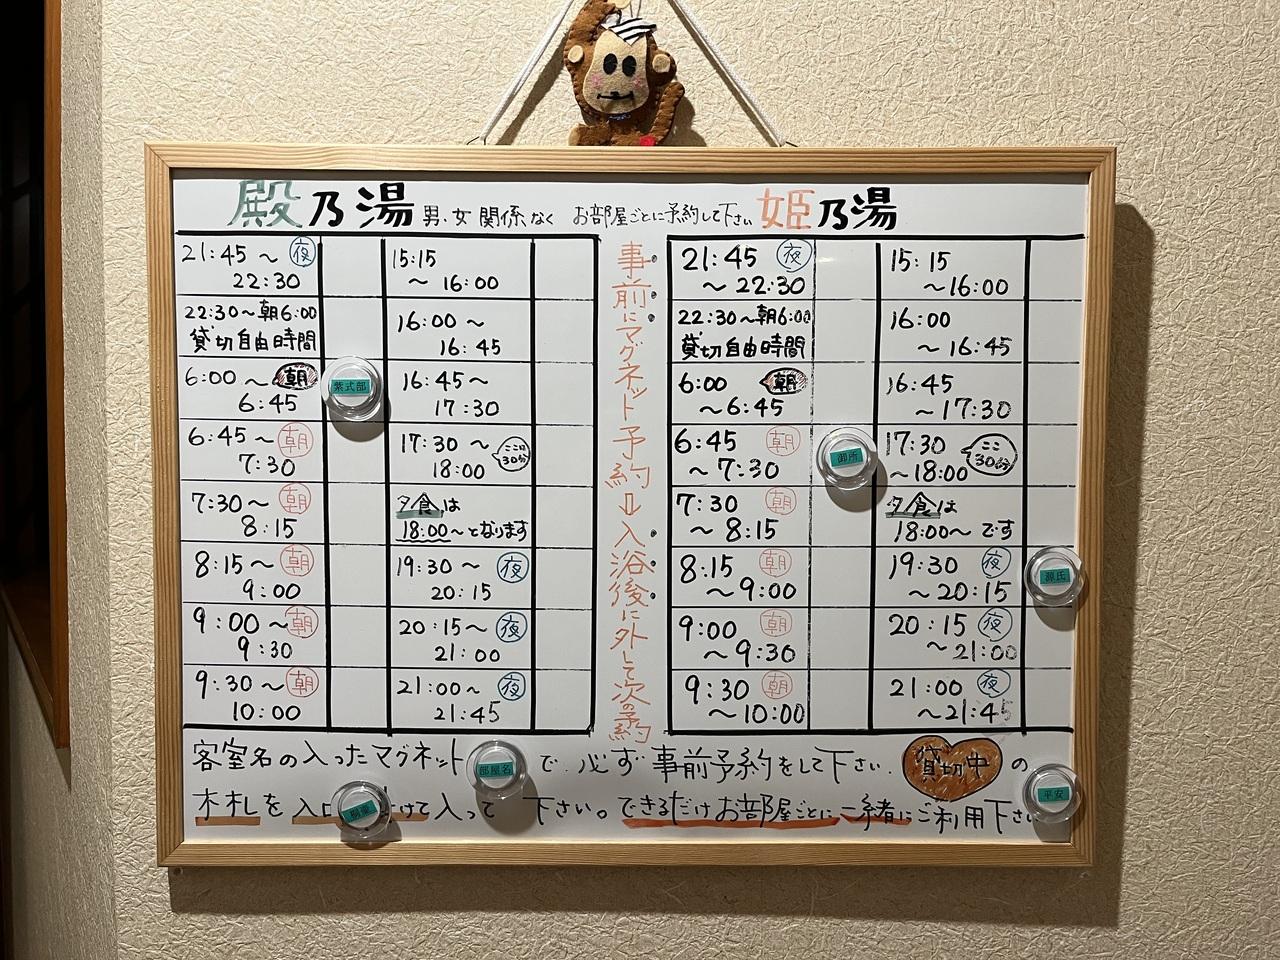 殿乃湯 男・女 関係なく お部屋ごとに予約して下さい 姫乃湯
21:45～ 夜
22:30
22:30～朝6:00
貸切自由時間
6:00～ 朝
6:45
紫式部
6:45～ 朝
7:30
7:30～ 朝
8:15
8:15～ 朝
9:00
9:00～ 朝
9:30
9:30～ 朝
10:00
15:15
～16:00
16:00～
16:45
16:45～
17:30
17:30～
18:00
ここは
30分
夕食は
18:00～となります
19:30～ 夜
20:15
20:15～ 夜
21:00
21:00～ 夜
21:45
事前にマグネット予約⇩入浴後に外して次の予約
21:45 夜
～22:30
22:30～朝6:00
貸切自由時間
6:00 朝
～6:45
6:45 朝
～7:30
御所
7:30 朝
～8:15
8:15 朝
～9:00
9:00 朝
～9:30
9:30 朝
～10:00
15:15
～16:00
16:00
～16:45
16:45
～17:30
17:30
～18:00
ここ
30分
夕食は
18:00～です
19:30 夜
～20:15
源氏
20:15 夜
～21:00
21:00 夜
～21:45
客室名の入ったマグネット 部屋名 で、必ず事前予約をして下さい。 貸切中 の
木札を入口 けて入って 下さい。できるだけお部屋ごとに一緒にご利用下さい
平安